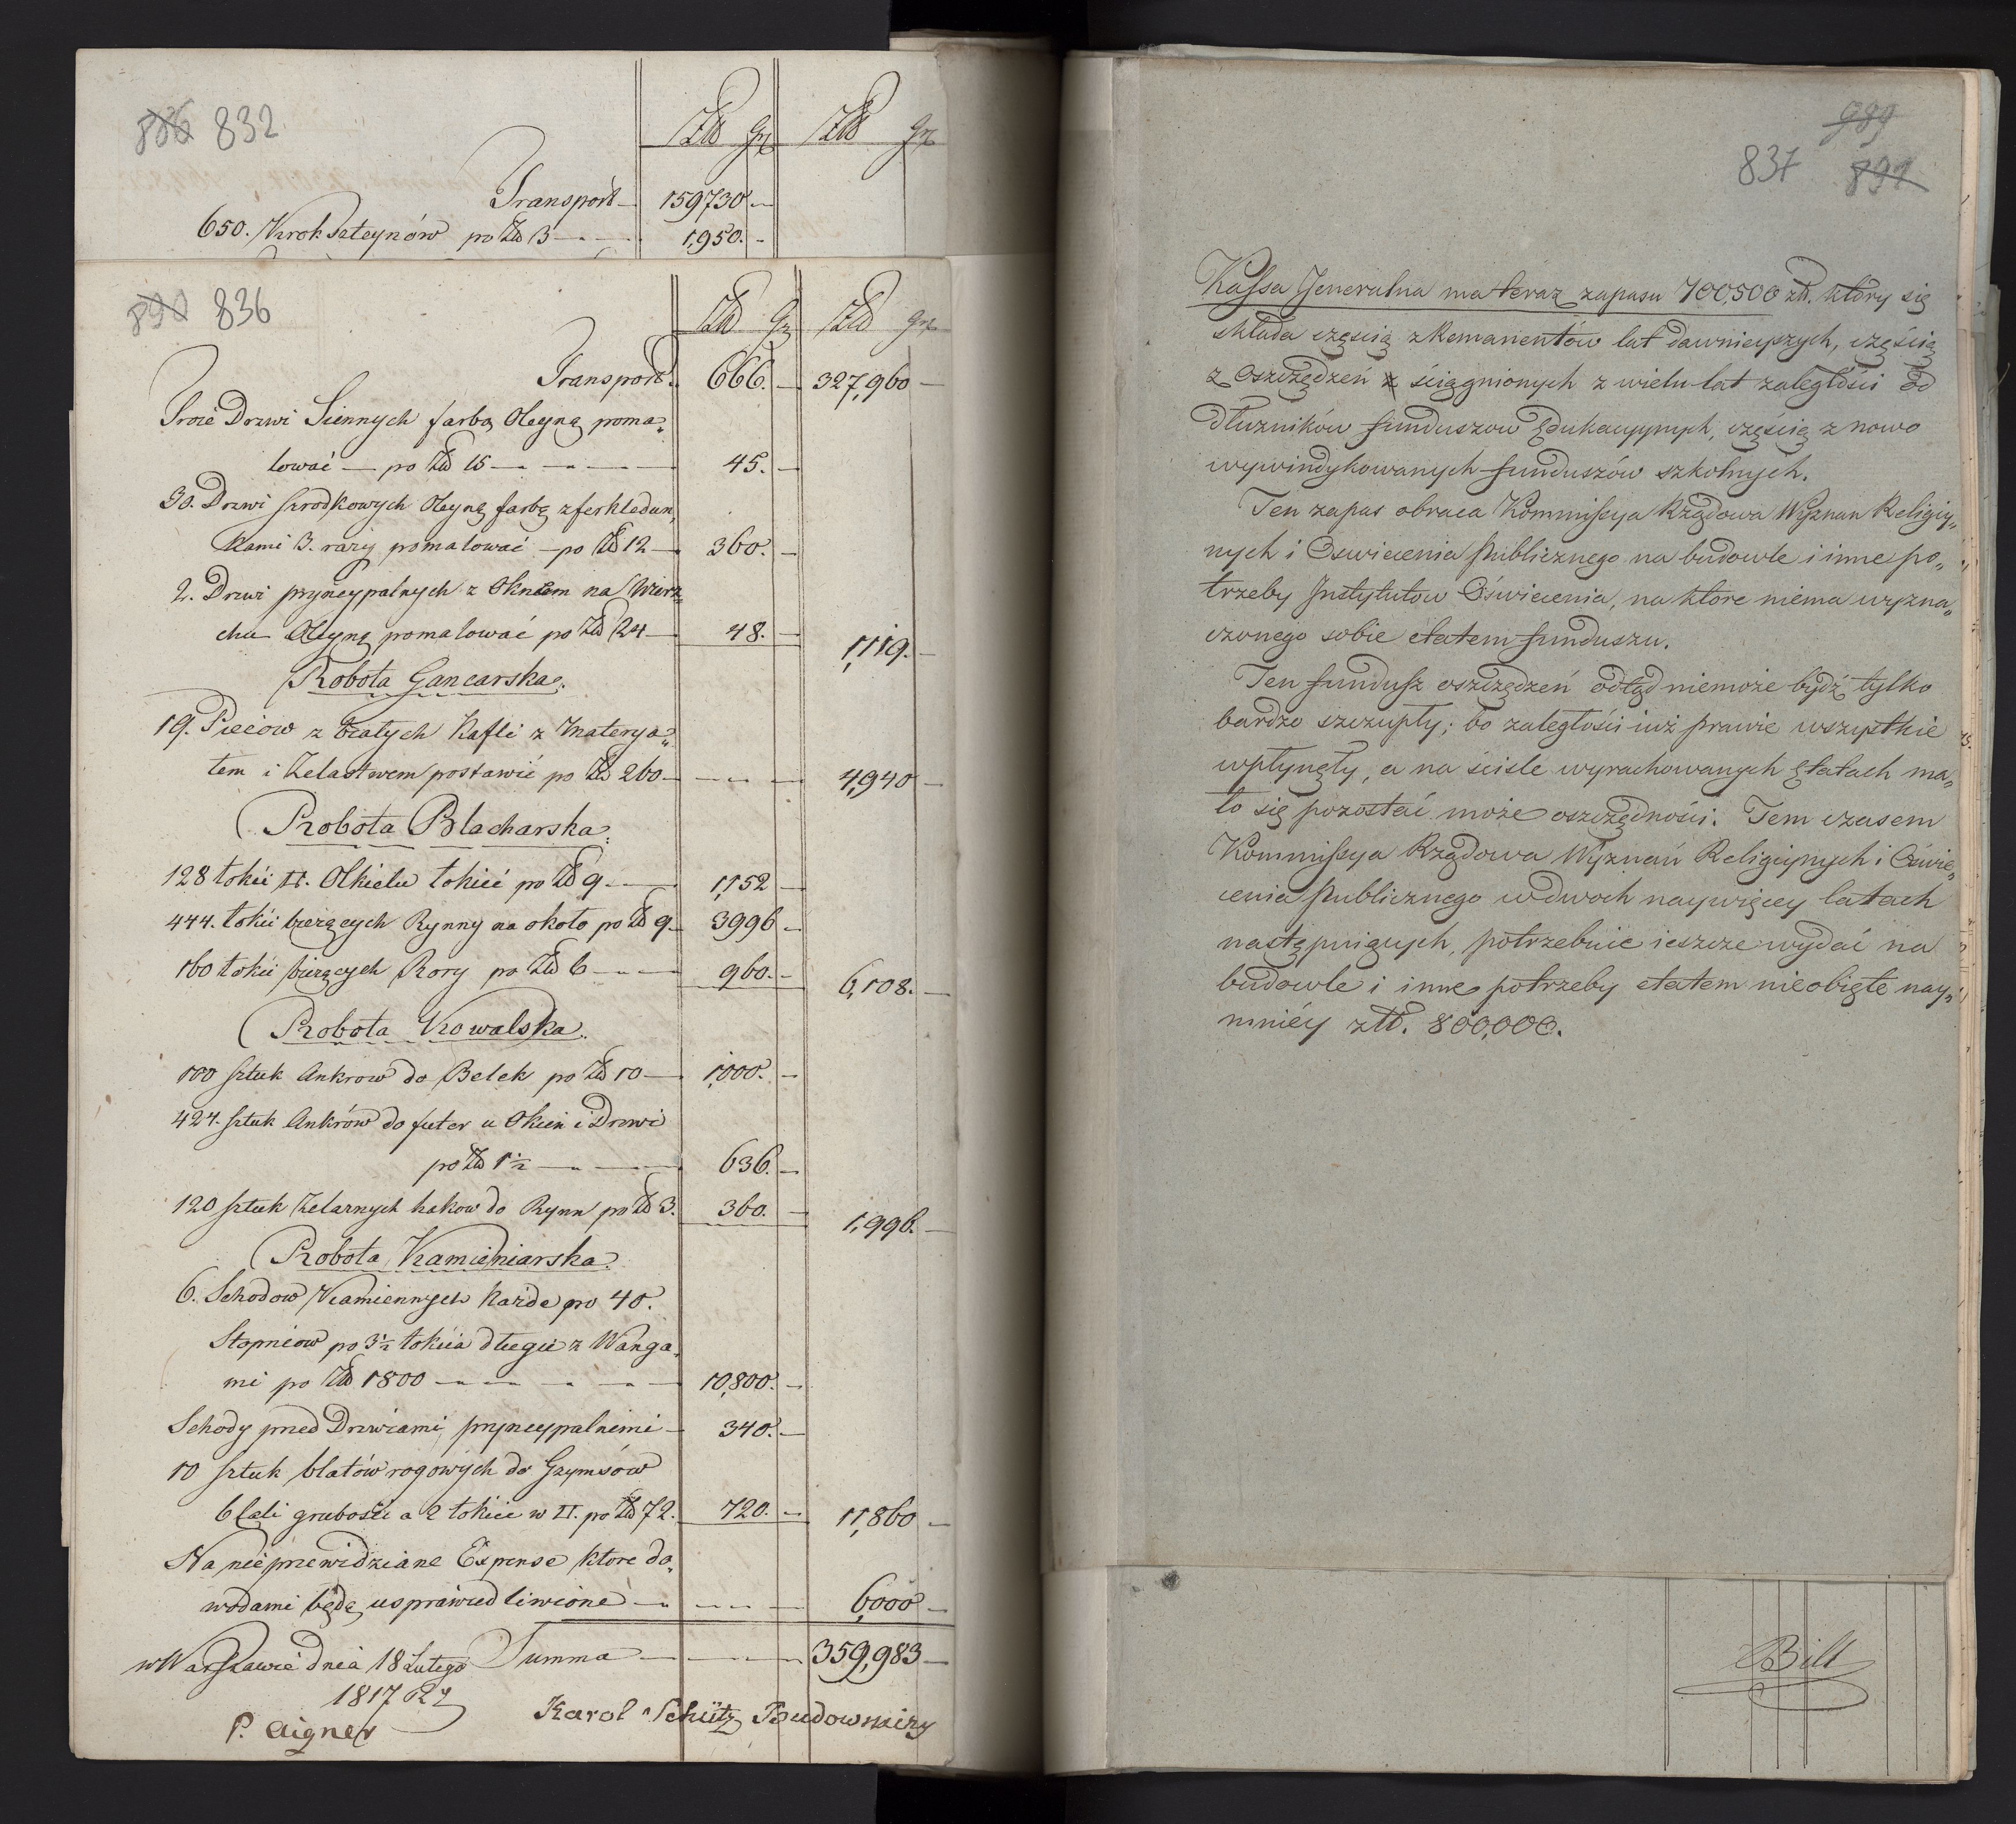 886 832
Złd Gr Złd Gr
Transport — 159730 —
650. Kroksztynów po Złd 3 — 1,950. —
890 836
Złd Gr Złd Gr
Transport. 666. — 327,960 —
Troie Drzwi Siennych farbą Oleyną poma„
lować — po Złd 15 — 45. —
30. Drzwi szrodkowych Oleyną farbą z ferkledun„
kami 3. razy pomalować — po Złd 12 — 360. —
2. Drzwi pryncypalnych z Oknem na Wierz„
chu Oleyną pomalować po Złd 24 — 48. — 1,119. —
Robota Gancarska.
19. Pieców z białych Kafli z Materya„
łem i Żelastwem postawić po Złd 260 — 4,940 —
Robota Blacharska.
128 łokci □. Olkielu łokieć po Złd 9 — 1,152 —
444. łokci bieżących Rynny na około po Złd 9 — 3996 —
160 łokci bieżących Rory po Złd 6 — 960. — 6,108. —
Robota Kowalska.
100 sztuk Ankrow do Belek po Złd 10 — 1,000. —
424. sztuk Ankrów do futer u Okien i Drzwi
po Złd 1½ — 636. —
120 sztuk Żelaznych hakow do Rynn po Złd 3. 360. — 1,996. —
Robota Kamieniarska.
6. Schodow Kamiennych każde po 40.
Stopniow po 3½ łokcia długie z Wanga„
mi po Złd 1800 — 10,800. —
Schody przed Drzwiami pryncypalnemi — 340. —
10 sztuk blatów rogowych do Gzymsów
6 Cali grubości a 2 łokcie w □. po Złd 72. 720. — 11,860 —
Na nieprzewidziane Expense które do„
wodami będą usprawiedliwione — 6,000 —
w Warszawie dnia 18 Lutego Summa — 359,983 —
1817 Rº
P. Aigner Karol Schütz Budowniczy
989
837 891
Kassa Generalna ma teraz zapasu 700,500 zł. który się
składa częścią z Remanentów lat dawnieyszych, częścią
z Oszczędzeń z ściągnionych z wielu lat zaległości od
dłużników funduszow Edukacyynych, częścią z nowo
wywindykowanych funduszów szkolnych.
Ten zapas obraca Kommissya Rządowa Wyznań Religiy„
nych i Oswiecenia Publicznego na budowle i inne po„
trzeby Instytutow Oświecenia, na które niema wyzna„
czonego sobie etatem funduszu.
Ten fundusz oszczędzeń odtąd niemoże bydź tylko
bardzo szczupły; bo zaległości iuż prawie wszystkie
wpłynęły, a na ściśle wyrachowanych Etatach ma„
ło się pozostać może oszczędności. Tem czasem
Kommissya Rządowa Wyznań Religiynych i Oświe„
cenia Publicznego w dwoch naywięcey latach
następuiących, potrzebuie ieszcze wydać na
budowle i inne potrzeby etatem nieobięte nay„
mniéy złł. 800,000.
Bill